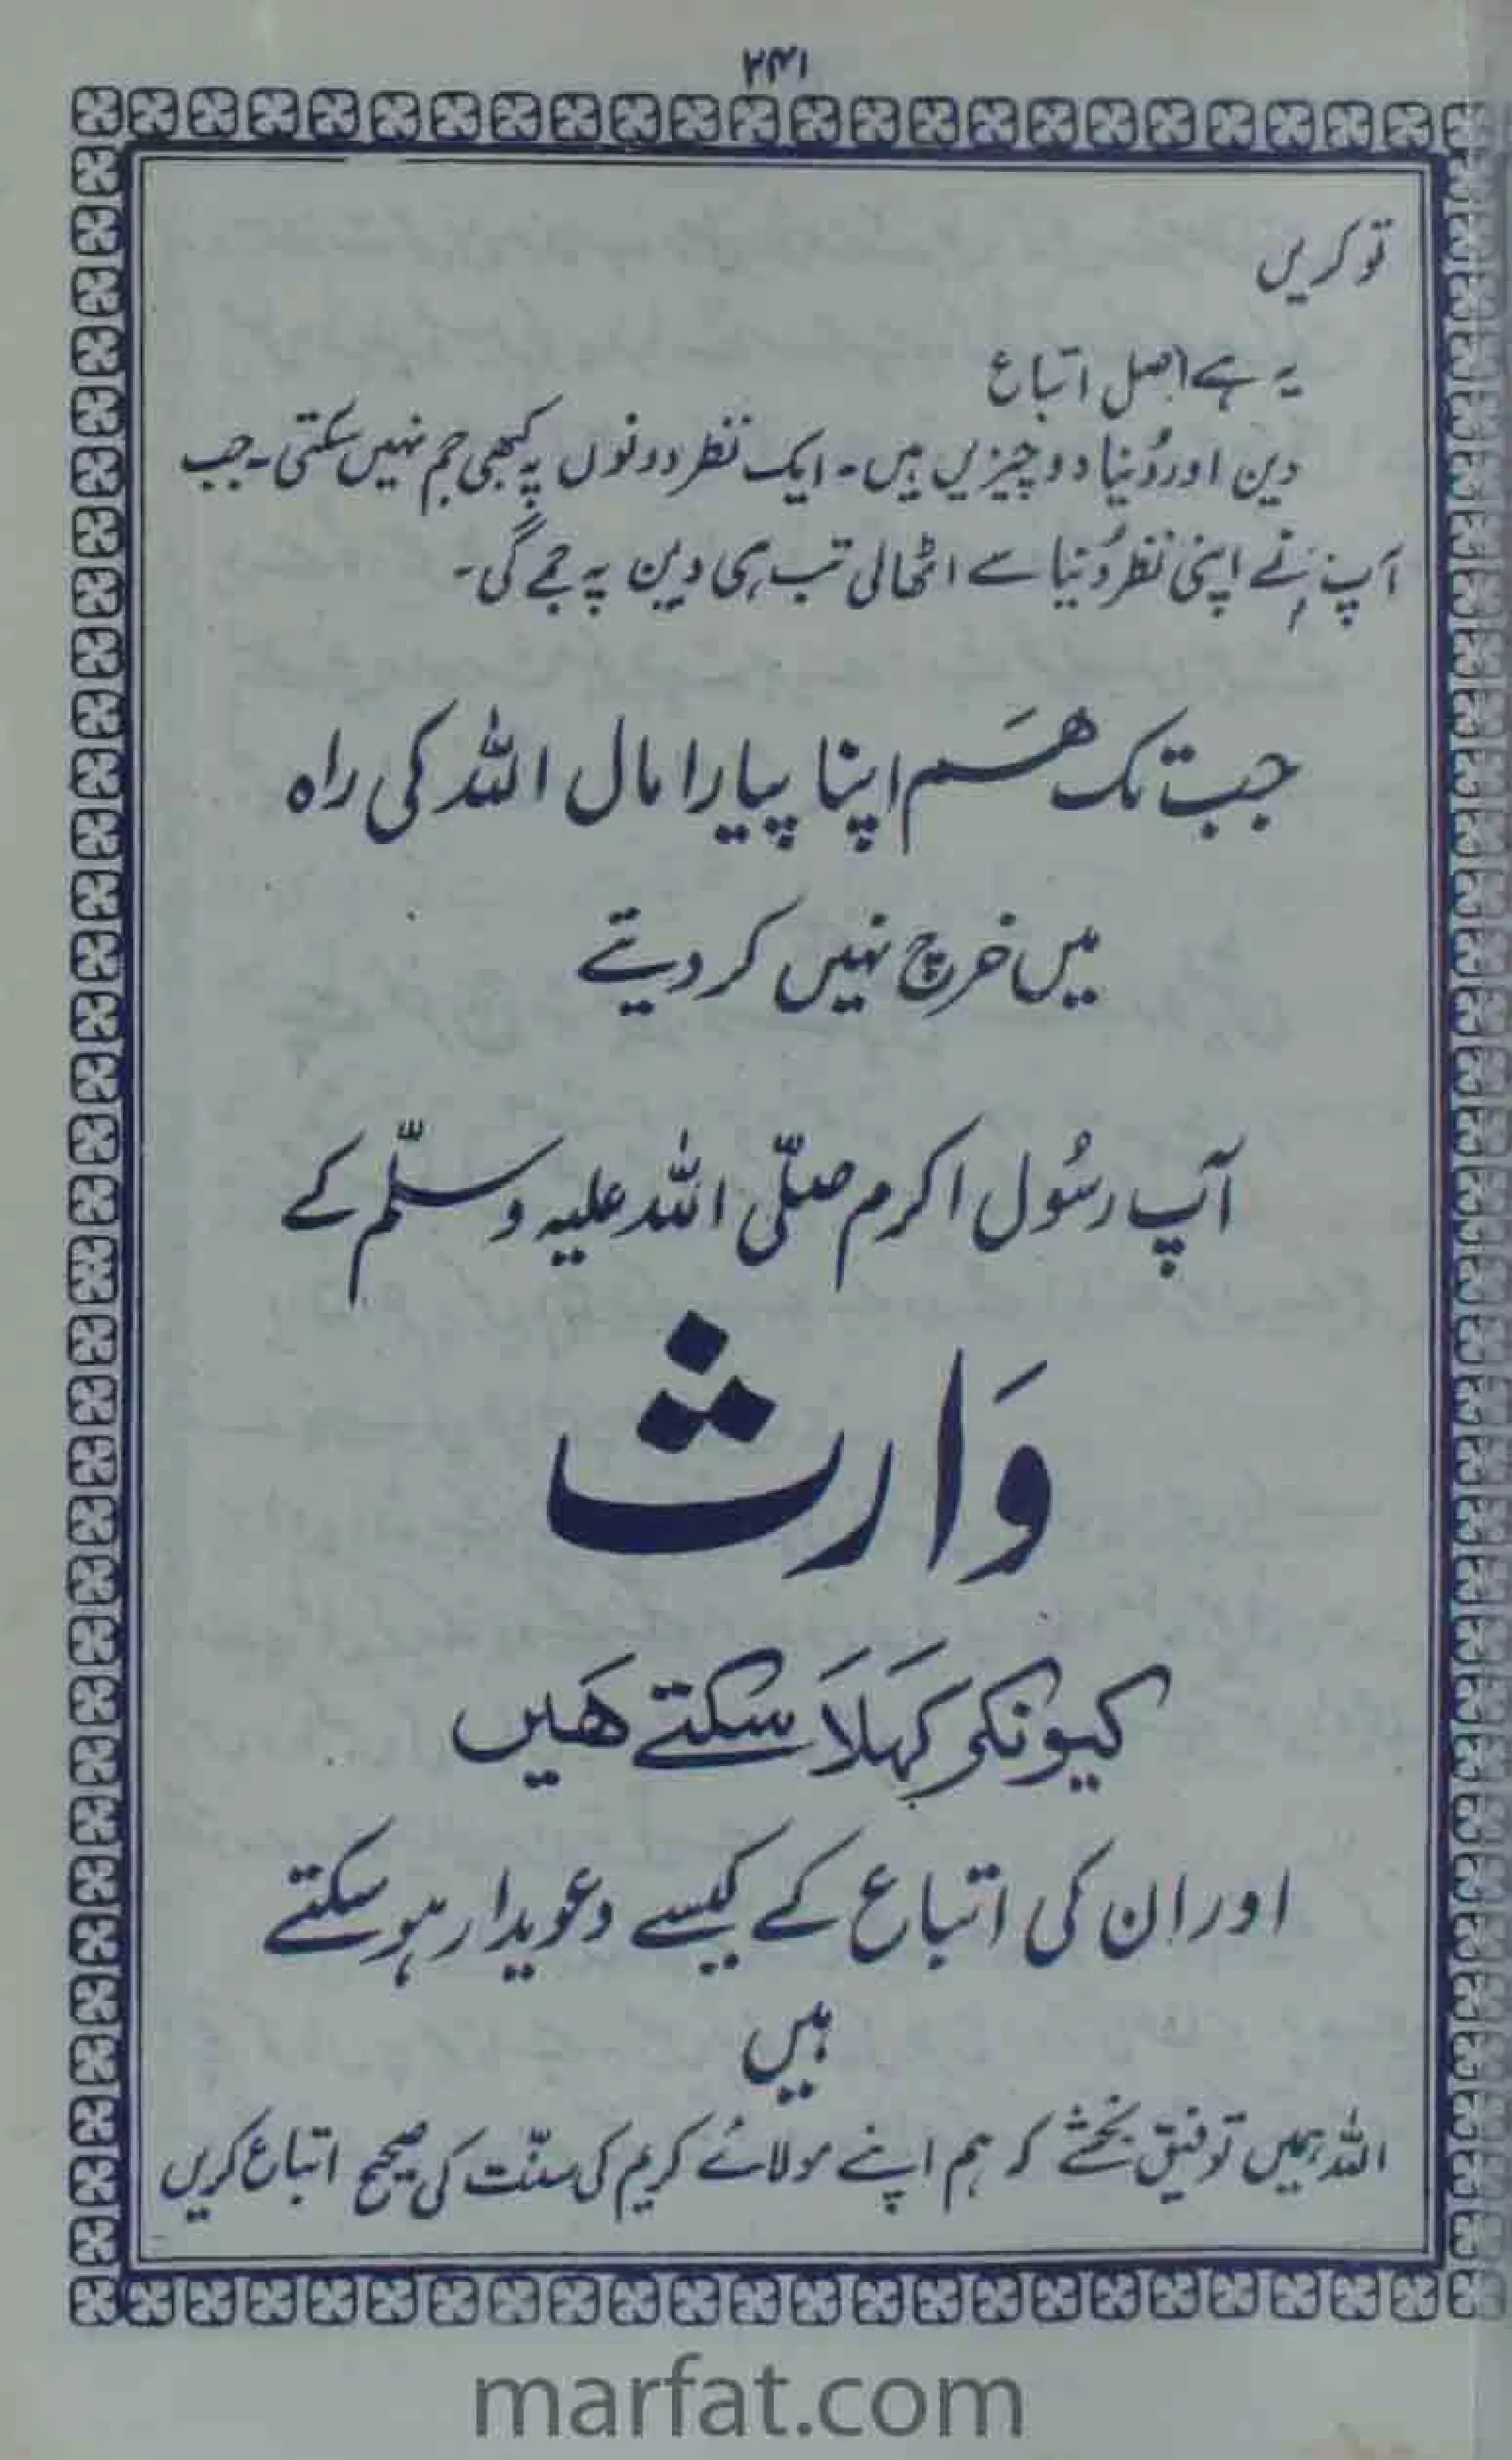 ۲۴۱
تو کریں
یہ ہے اصل اتباع
دین اور دُنیا دو چیزیں ہیں۔ ایک نظر دونوں پہ کبھی جم نہیں سکتی۔ جب
آپ نے اپنی نظر دُنیا سے اٹھالی تب ہی دین پہ جمے گی۔
جب تک ہَم اپنا پیارا مال اللہ کی راہ
میں خرچ نہیں کر دیتے
آپ رسُول اکرم صلّی اللہ علیہ وسلّم کے
وَارث
کیونکر کہَلاَ سکتے ہَیں
اور ان کی اتباع کے کیسے دعویدار ہو سکتے
ہیں
اللہ ہمیں توفیق بخشے کہ ہم اپنے مولائے کریم کی سنّت کی صحیح اتباع کریں
marfat.com